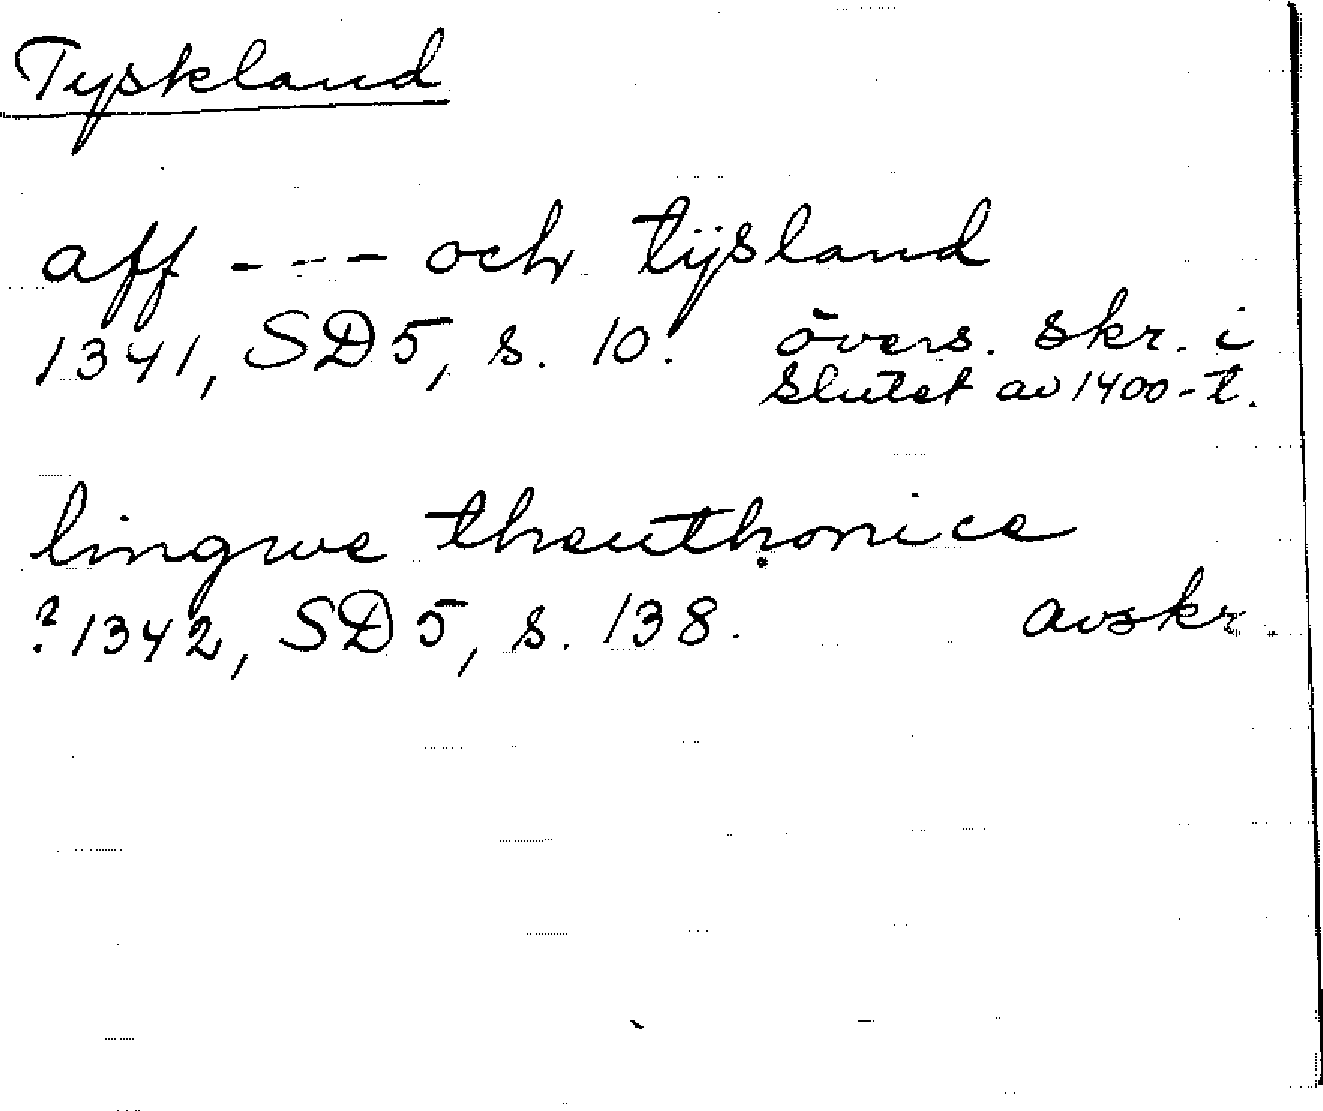 Tyskland
aff - - - och tÿsland
1341, SD 5, s. 10. övers. skr. i
slutet av 1400-t.
lingwe theuthonice
? 1342, SD 5, s. 138. avskr.